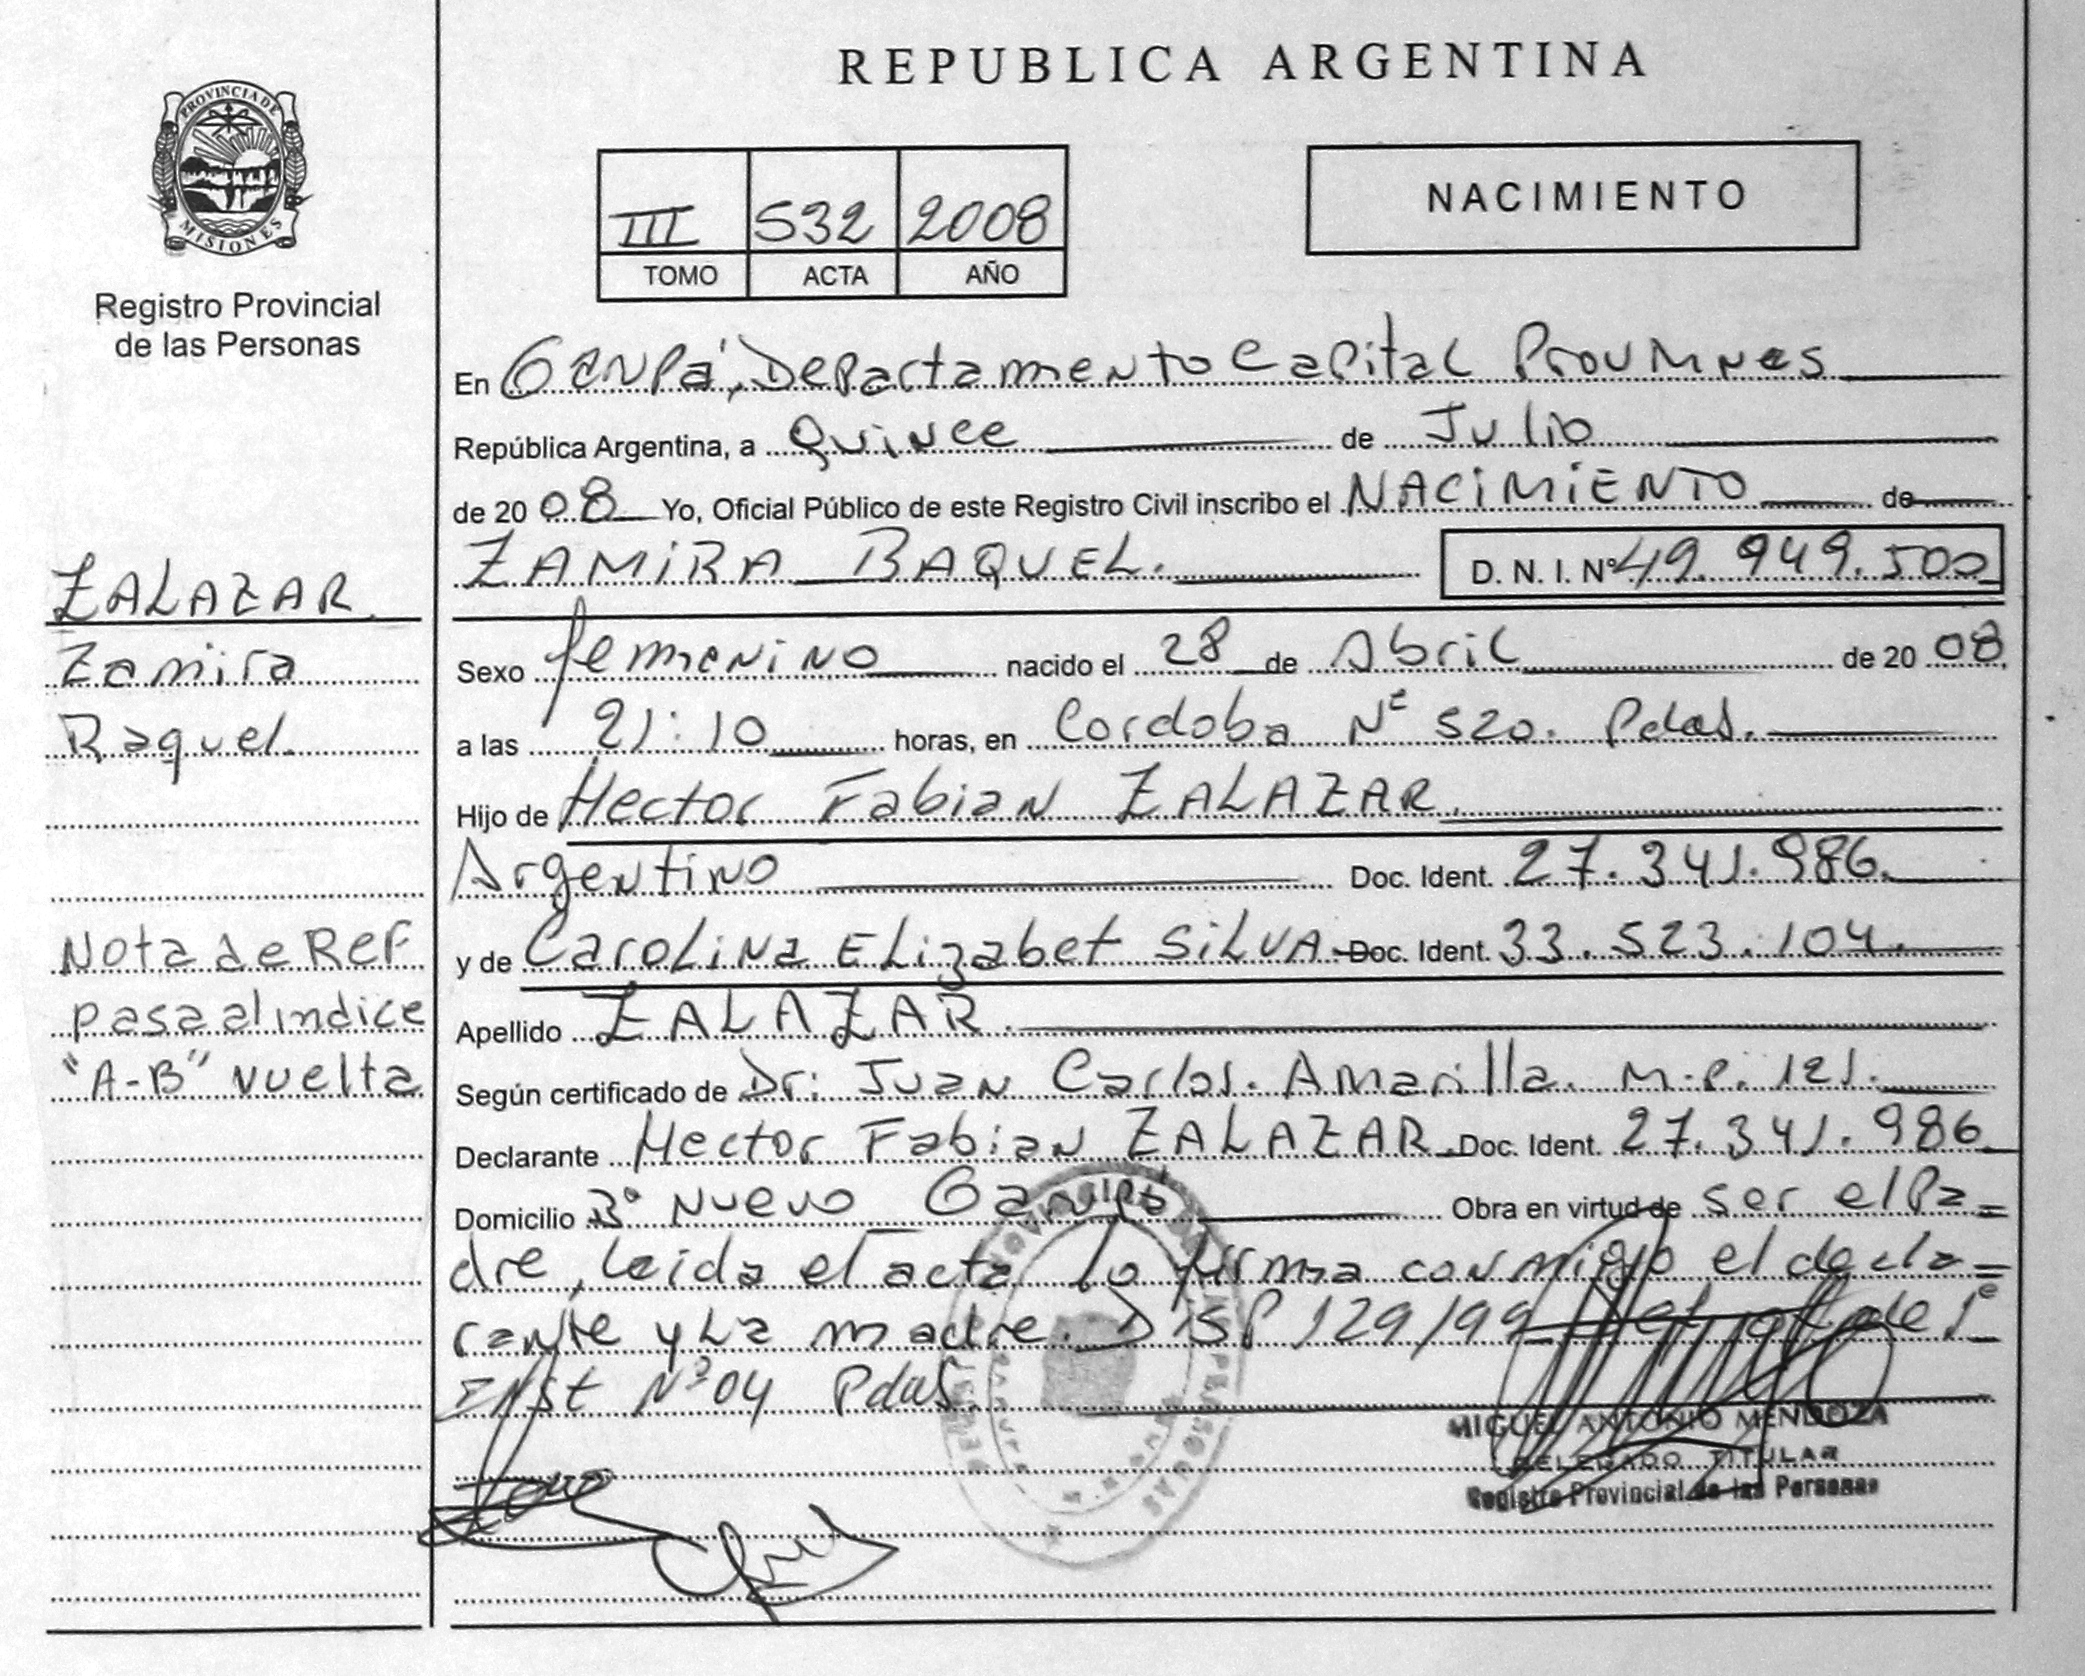 REPUBLICA ARGENTINA
PROVINCIA DE
MISIONES
Registro Provincial
de las Personas
III 532 2008
TOMO ACTA AÑO
NACIMIENTO
En Garupá, Departamento Capital
República Argentina, a Quince de Julio
de 2008 Yo, Oficial Público de este Registro Civil inscribo el NACIMIENTO de
ZAMIRA RAQUEL. D. N. I. Nº 49.949.500
ZALAZAR
Zamira
Raquel.
Sexo femenino nacido el 28 de Abril de 2008
a las 21:10 horas, en Cordoba Nº 520. Pdas.
Hijo de Hector Fabian ZALAZAR.
Argentino Doc. Ident. 27.341.986.
y de Carolina Elizabet SILVA. Doc. Ident. 33.523.104.
Apellido ZALAZAR.
Nota de Ref
pasa al indice
"A-B" vuelta
Según certificado de Dr: Juan Carlos. Amarilla. M.P. 121.
Declarante Hector Fabian ZALAZAR. Doc. Ident. 27.341.986
Domicilio Bº Nuevo Garupá Obra en virtud de ser el Pa=
dre, leida el acta lo firma conmigo el decla=
rante y La madre. DISP 129/99
Inst Nº 04 Pdas.
MIGUEL ANTONIO MENDOZA
DELEGADO TITULAR
Registro Provincial de las Personas